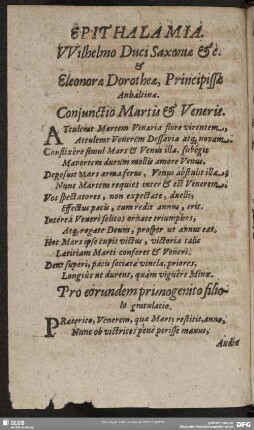 EPITHALAMIA.
VVilhelmo Duci Saxoniæ &c.
&
Eleonoræ Dorotheæ, Principissæ
Anhaltinæ.
Conjunctiō Martis & Veneris.
ATtulerat Martem Vinaria flore virentem,
Attulerat Venerem Dessavia atq, novam.
Conflixêre simul Mars & Venus illa, subegit
Mavortem durum mollis amore Venus.
Deposuit Mars arma ferus, Venus abstulit illa,
Nunc Martem requies inter & est Venerem.
Vos spectatores, non expectate, duelli,
Effectus pacis, cum redit annus, erit.
Interea Veneri solitos ornate triumphos,
Atq, rogate Deum, prosper ut annus eat.
Hoc Mars ipse cupit victus, victoria talis
Latitiam Marti conferet & Veneri.
Dent superi, pacis sociata vincla, priores,
Longiùs ut durent, quàm viguêre Minæ.
Pro eorundem primogenito filio-
lo gratulatio.
PRæterito, Venerem, quæ Mars restitit, anno,
Nunc ob victrices penè perisse manus,
Audia
SLUB
DFG